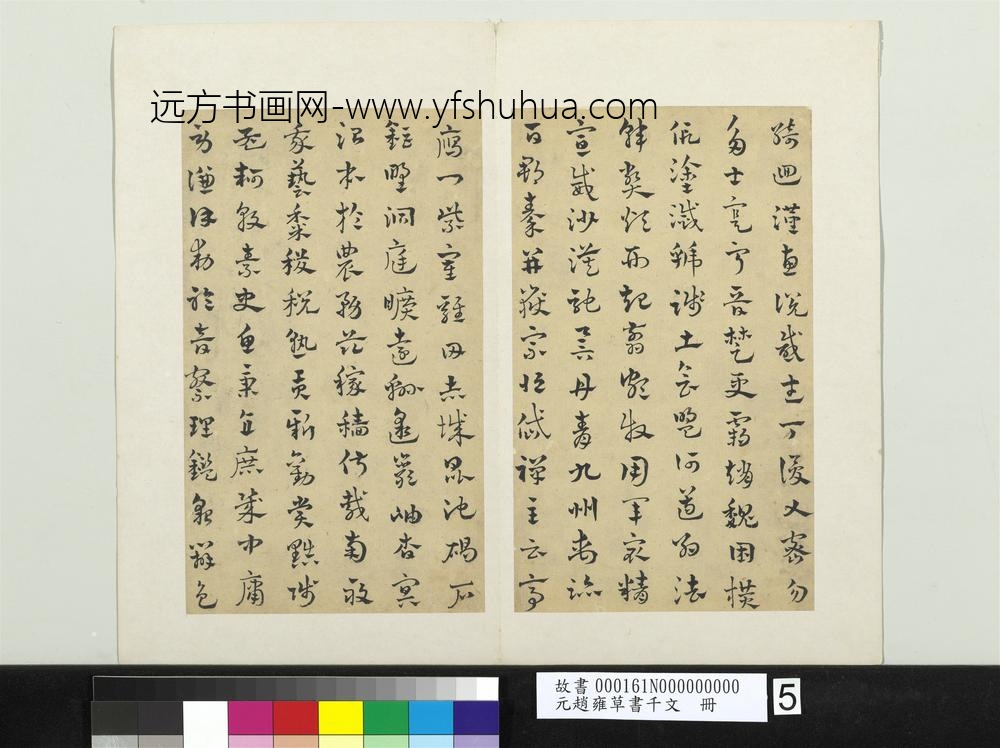 远方书画网-www.yfshuhua.com
綺迴漢惠說感武丁俊乂密勿
多士寔寧晉楚更霸趙魏困橫
假塗滅虢踐土會盟何遵約法
韓弊煩刑起翦頗牧用軍最精
宣威沙漠馳譽丹青九州禹跡
百郡秦并嶽宗恒岱禪主云亭
鴈門紫塞雞田赤城昆池碣石
鉅野洞庭曠遠綿邈巖岫杳冥
治本於農務茲稼穡俶載南畝
我藝黍稷稅熟貢新勸賞黜陟
孟軻敦素史魚秉直庶幾中庸
勞謙謹勑聆音察理鑑貌辨色
故書 000161N000000000
元趙雍草書千文 冊
5